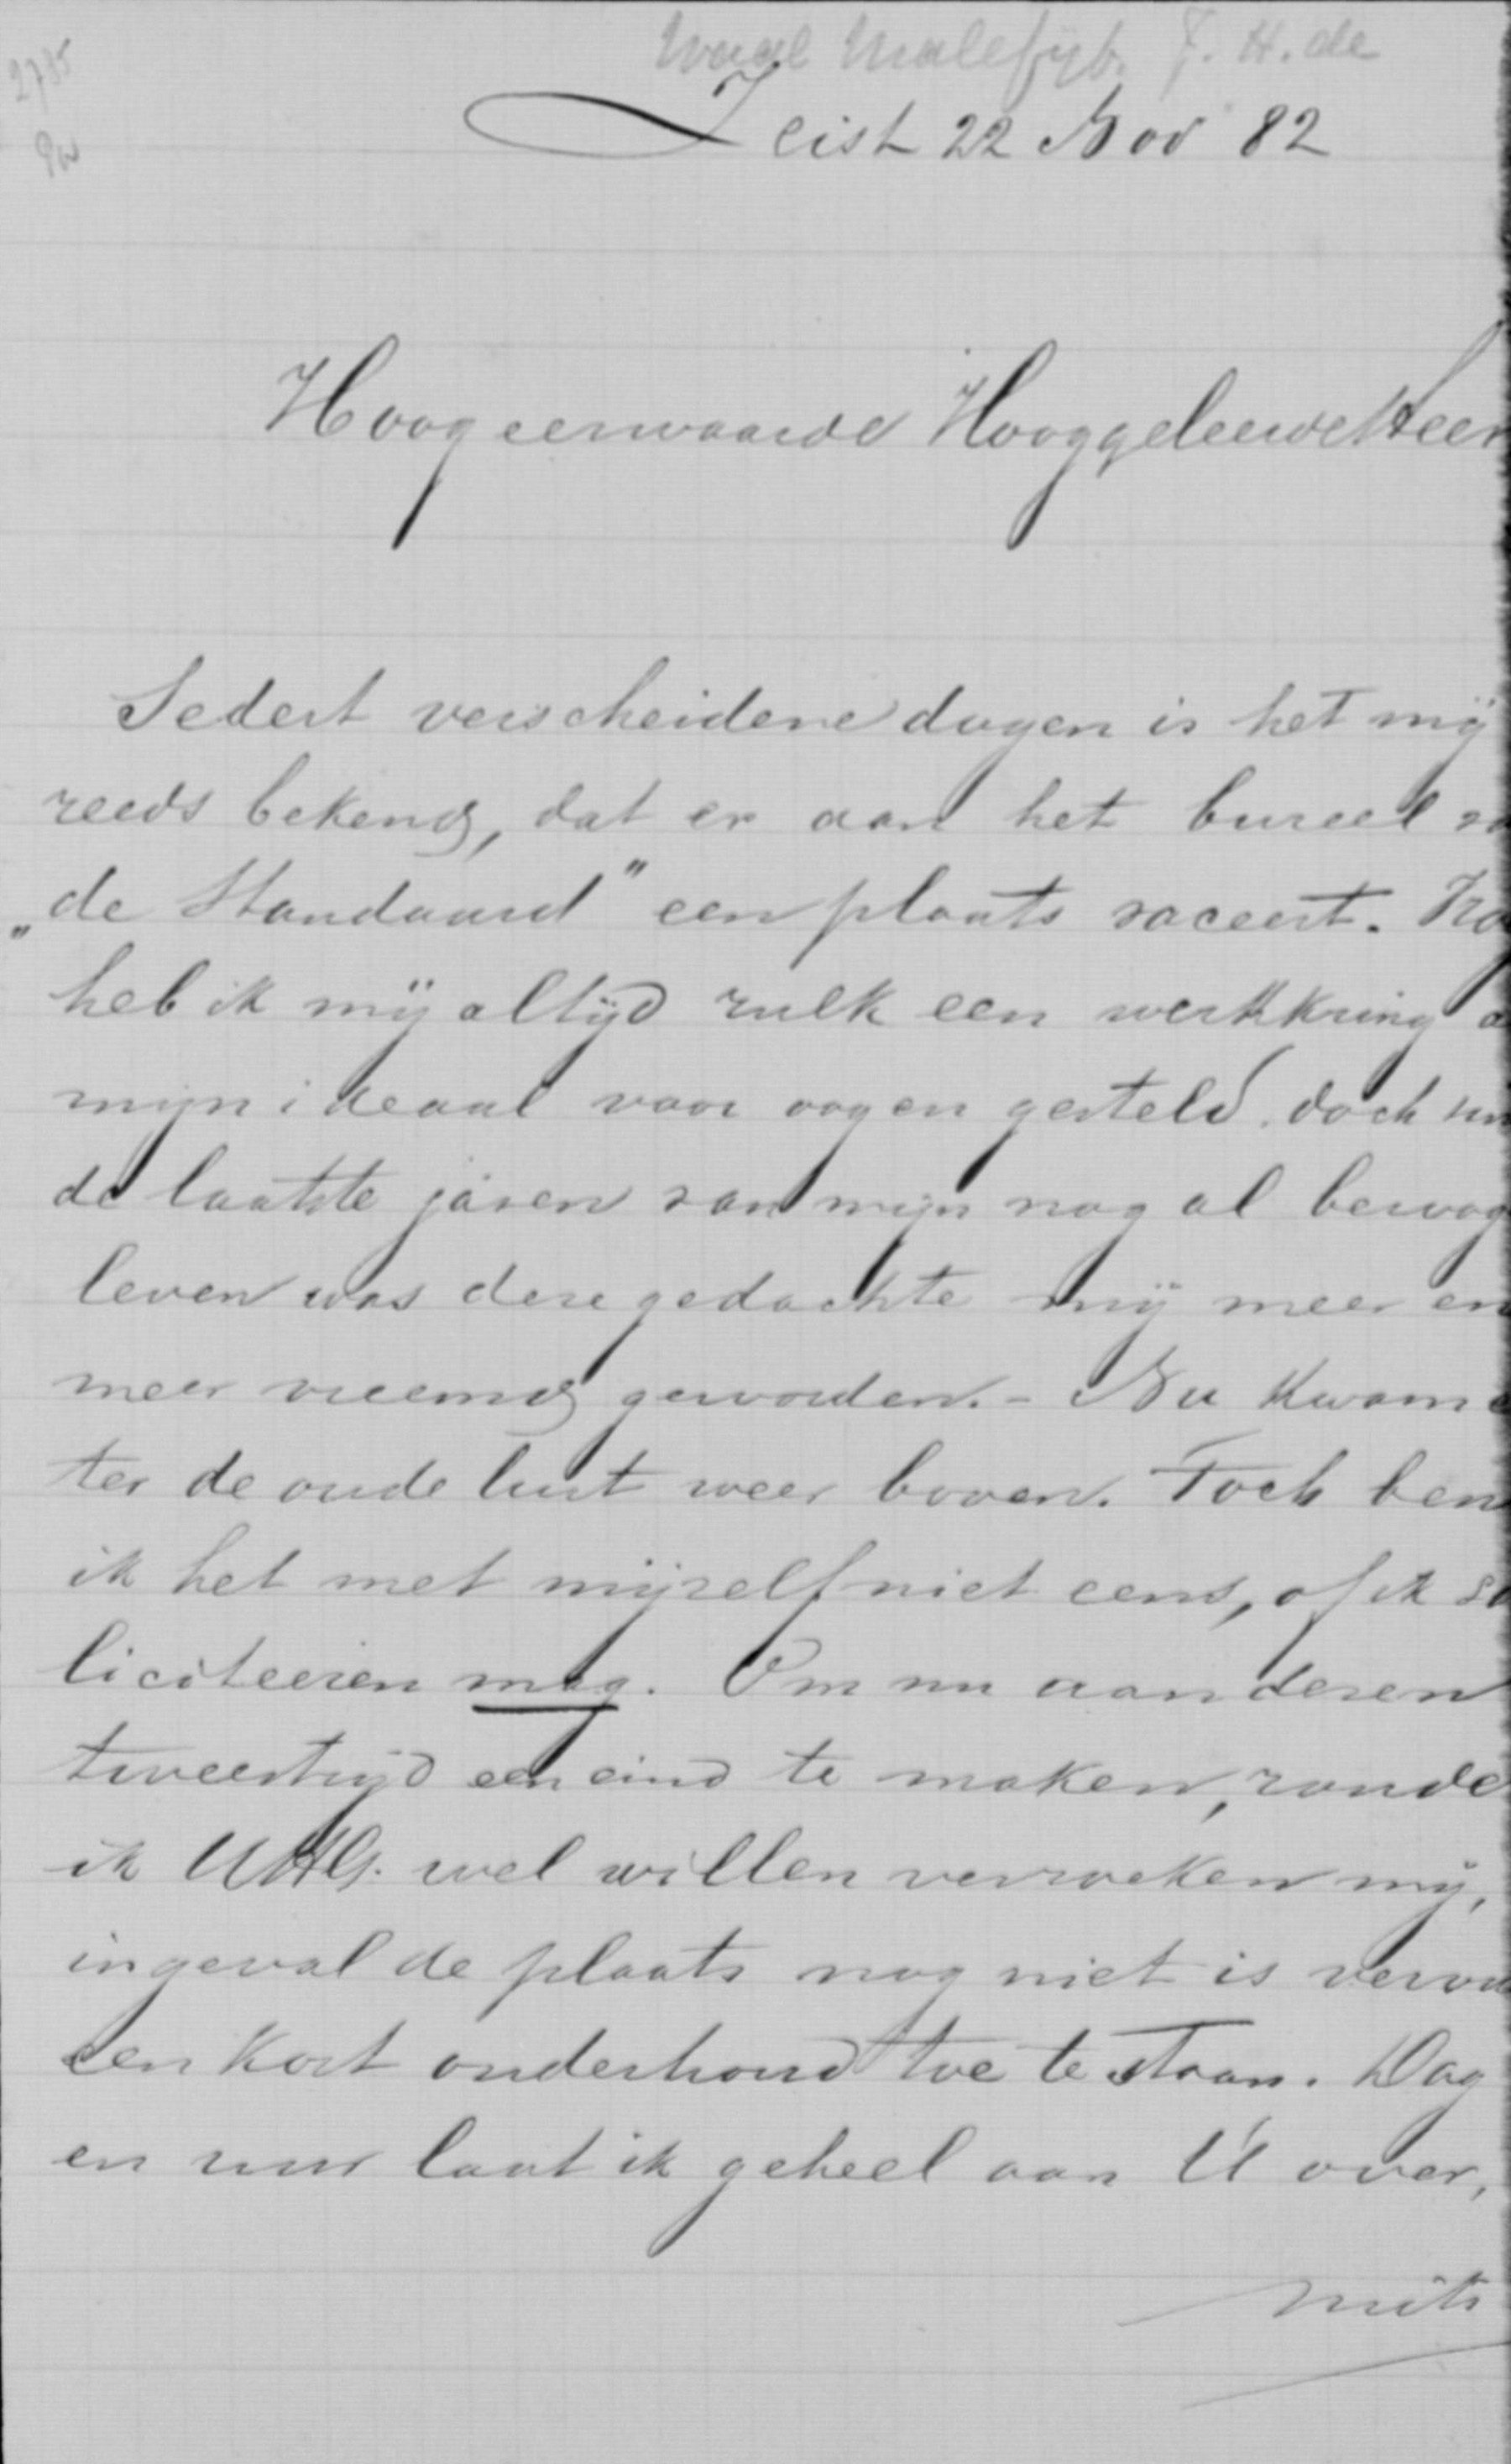 2735
Waal Malefijt, F. H. de
Zeist 22 Nov 82
Hoogeerwaarde Hooggeleerde Heer
Sedert verscheidene dagen is het mij
reeds bekend, dat er aan het bureel va
„de Standaard" een plaats vaceert.
heb ik mij altijd zulk een werkkring a
mijn ideaal voor oogen gesteld, doch
de laatste jaren van mijn nog al bewog
leven was deze gedachte mij meer en
meer vreemd geworden. - Nu kwam e
ter de oude lust weer boven. Toch ben
ik het met mijzelf niet eens, of ik so
liciteeren mag. Om nu aan dezen
tweestrijd een eind te maken, zoude
ik UHG. wel willen verzoeken mij,
ingeval de plaats nog niet is vervu
een kort onderhoud toe te staan. Dag
en uur laat ik geheel aan U over,
mits